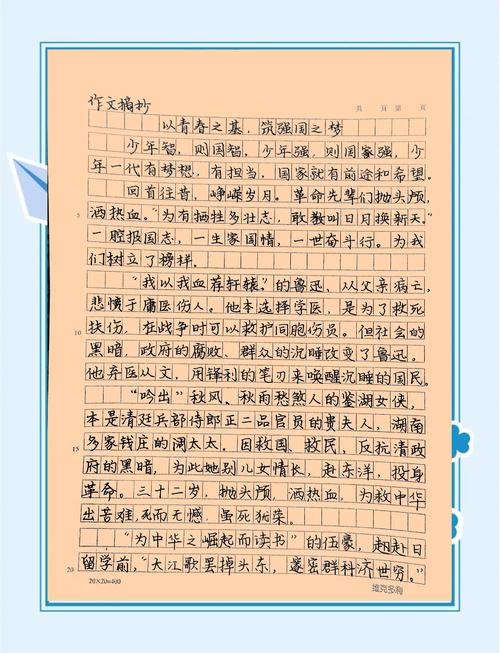 作文摘抄
共 页 第 页
以青春之基，筑强国之梦
少年智，则国智，少年强，则国家强，少
年一代有梦想，有担当，国家就有前途和希望。
回首往昔，峥嵘岁月。革命先辈们抛头颅，
洒热血。“为有牺牲多壮志，敢教叫日月换新天。”
5
一腔报国志，一生家国情，一世奋斗行。为我
们树立了榜样。
“我以我血荐轩辕”的鲁迅、从父亲病亡，
悲愤于庸医伤人。他本选择学医，是为了救死
扶伤，在战争时可以救护同胞伤员。但社会的
10
黑暗，政府的腐败、群众的沉睡改变了鲁迅。
他弃医从文，用锋利的笔刃来唤醒沉睡的国民。
“吟出”秋风、秋雨愁煞人的鉴湖女侠，
本是清廷兵部侍郎正二品官员的贵夫人，湖南
多家钱庄的阔太太。因救国、救民，反抗清政
15
府的黑暗，为此她别儿女情长，赴东洋，投身
革命。三十二岁，抛头颅，洒热血，为救中华
出苦难，死而无憾，虽死犹荣。
“为中华之崛起而读书”的伍豪，赳赴日
留学前，“大江歌罢掉头东，邃密群科济世穷。”
20
20×20=400
维克多利